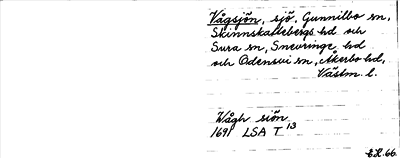 Vågsjön, sjö, Gunnilbo sn,
Skinnskattebergs hd och
Sura sn, Snevringe hd
och Odensvi sn, Åkerbo hd,
Västm. l.
Wågh siön
1691 LSA T 13
E.H. 66